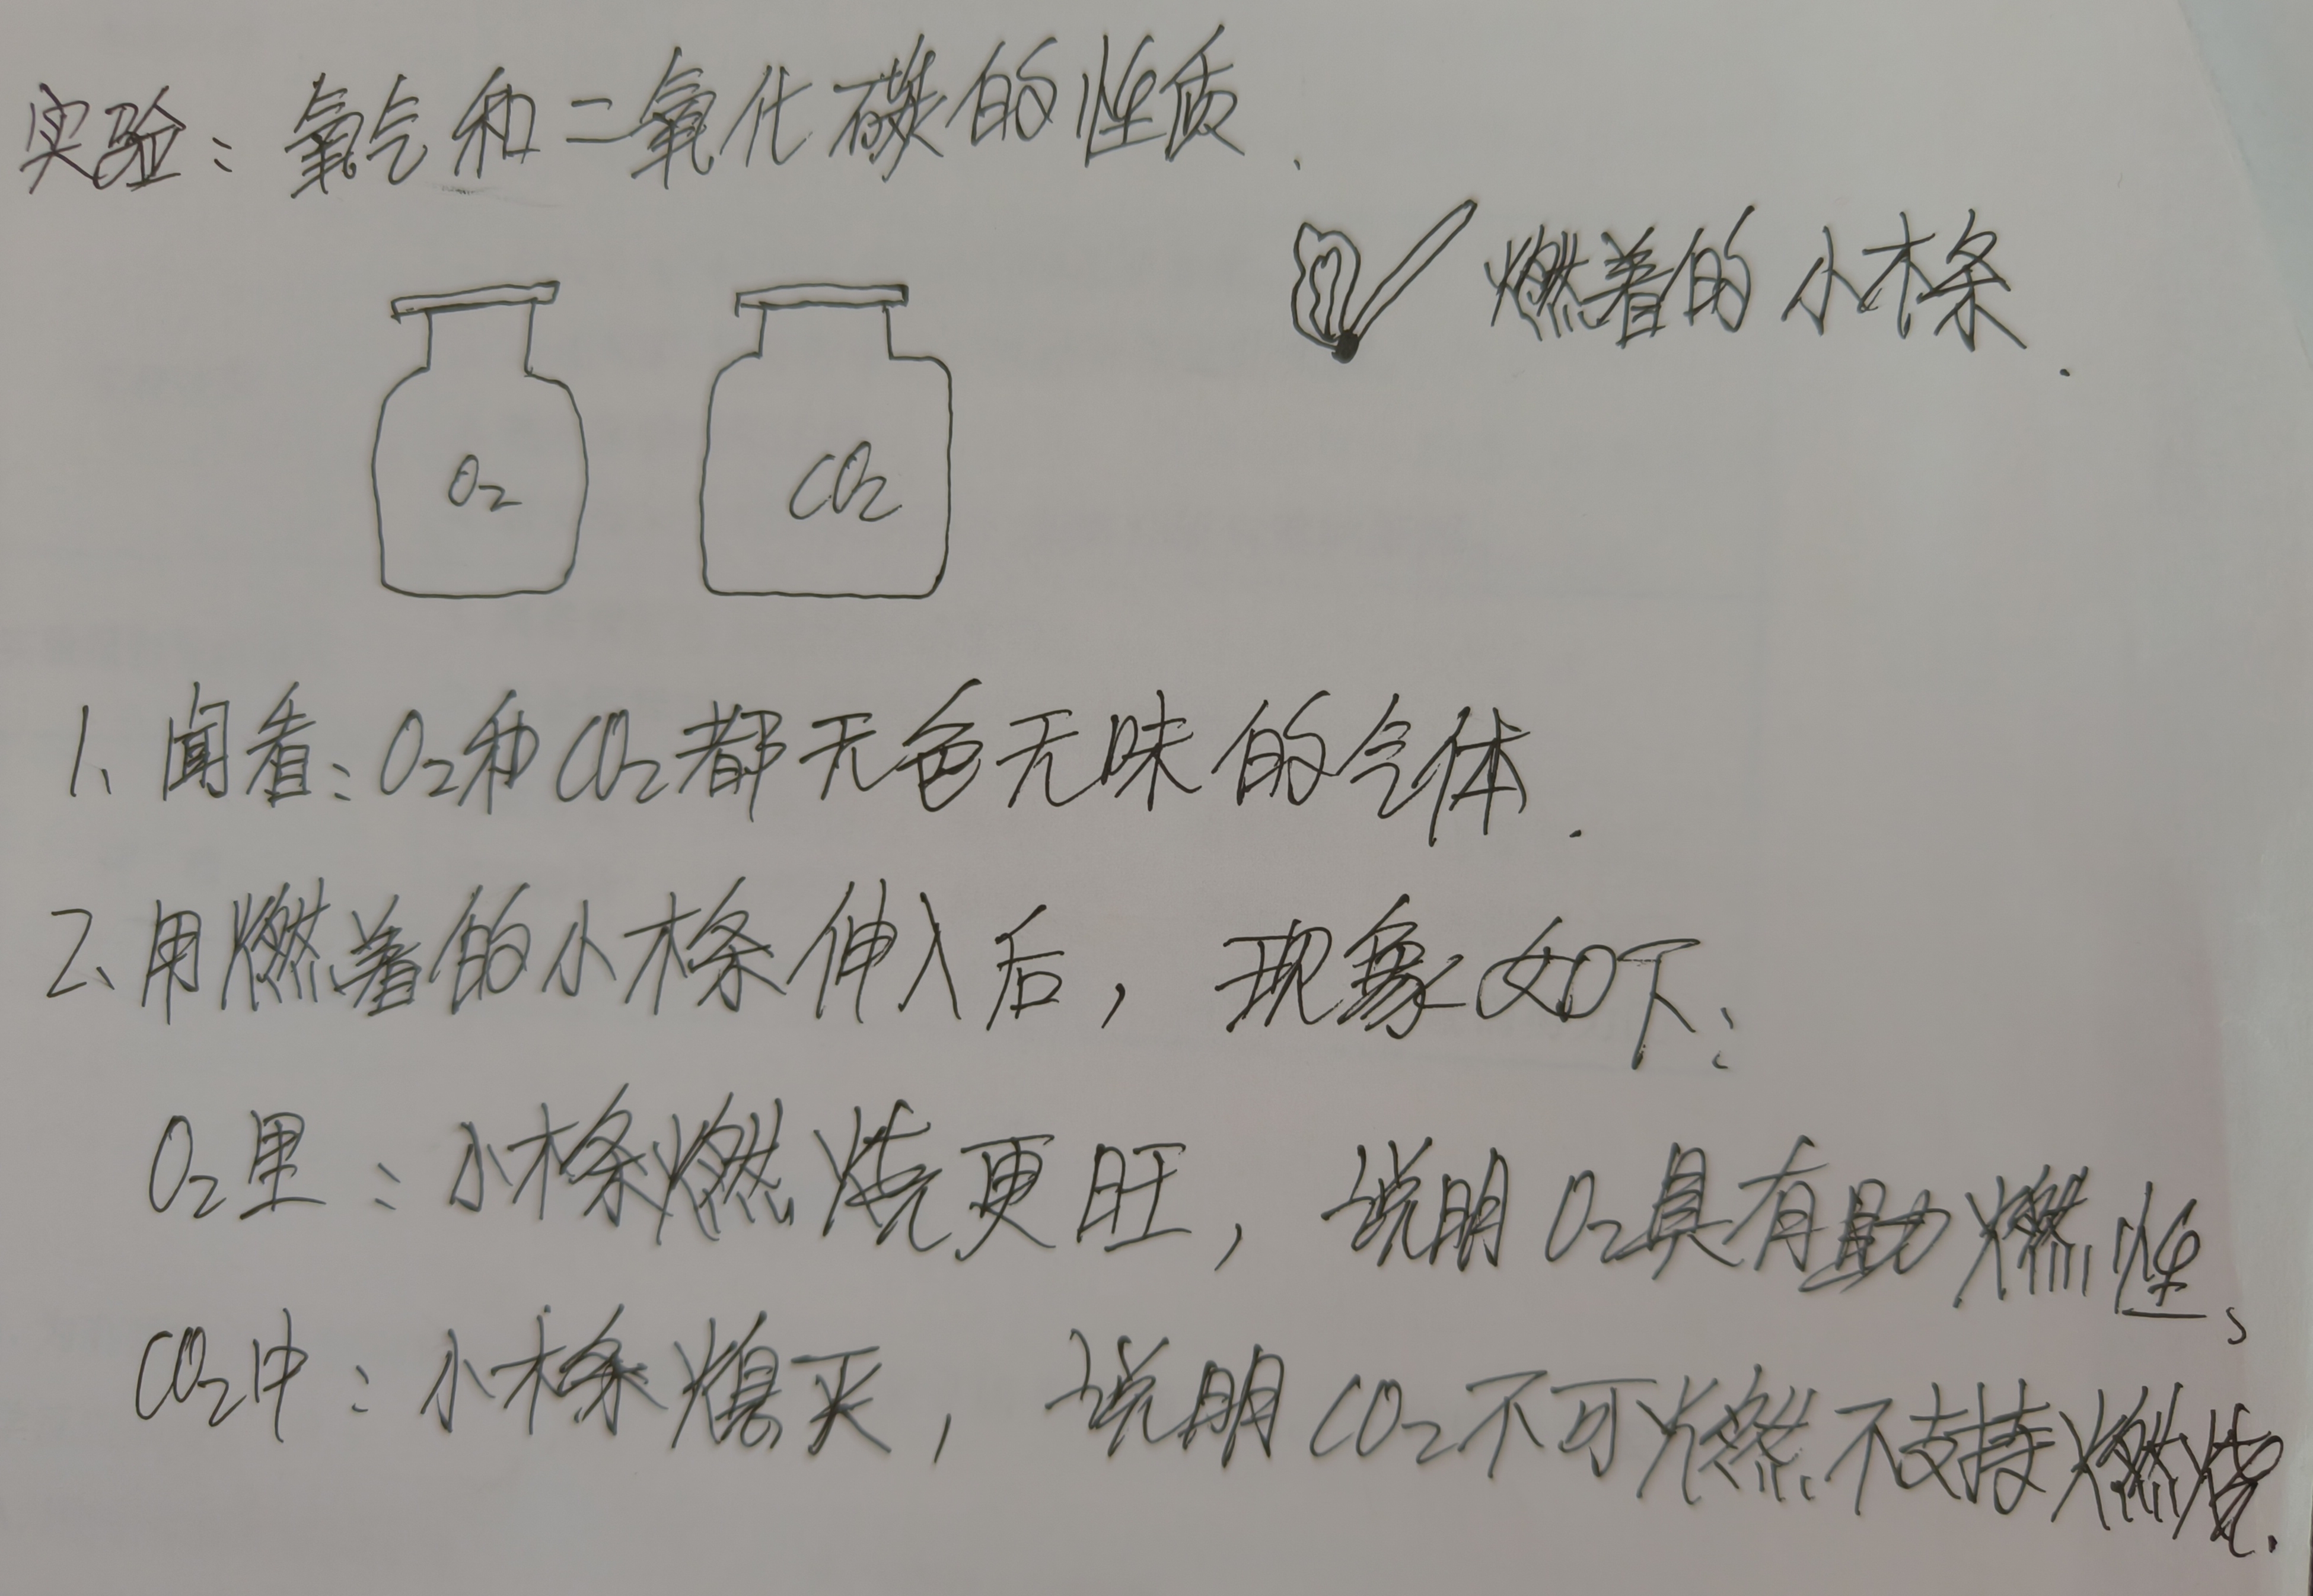 实验：氧气和二氧化碳的性质.
燃着的小木条.
O₂
CO₂
1、闻看：O₂和CO₂都无色无味的气体.
2、用燃着的小木条伸入后，现象如下：
O₂里：小木条燃烧更旺，说明O₂具有助燃性、
CO₂中：小木条熄灭，说明CO₂不可燃不支持燃烧.